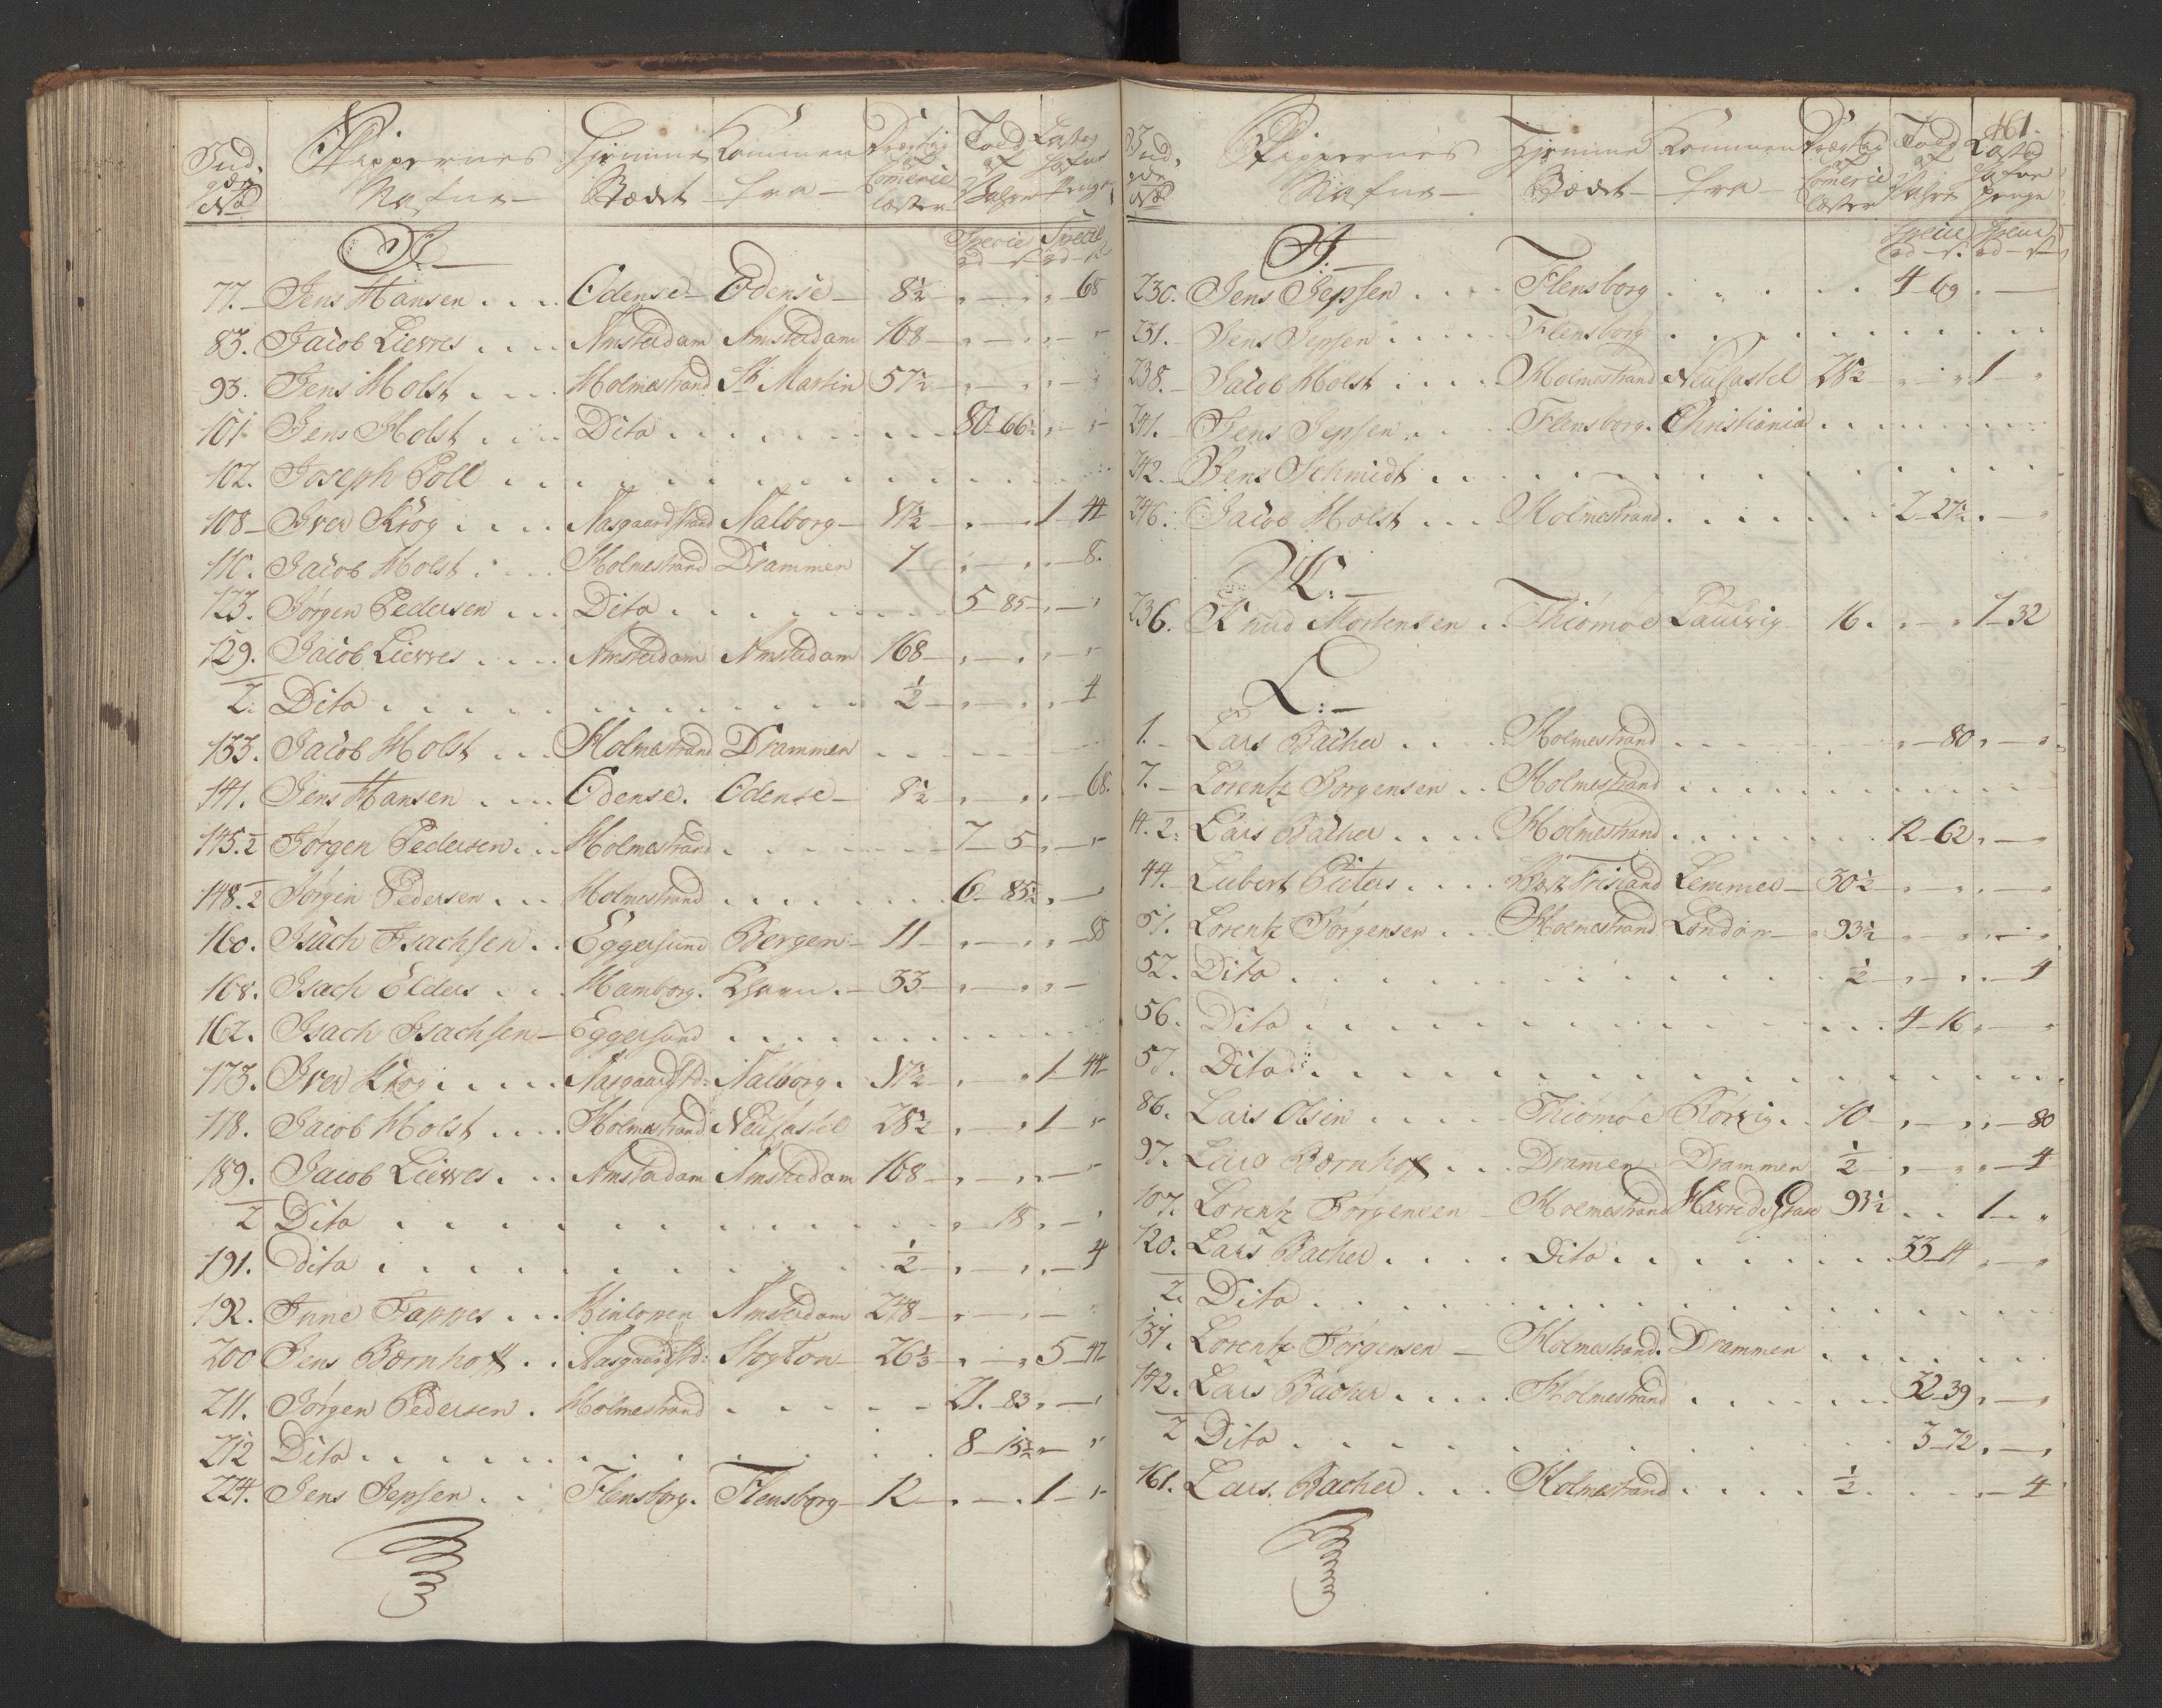 Ind- Skippernes Hjemme Kommen Drægtig Told Laste
gde Nafne Stædet fra af Comerce af og Hafne
No læster Vahre Penge
J. Specie Specie
77. Jens Hansen Odense Odense 8½ 68
83. Jacob Lieves Amsterdam Amsterdam 168
93. Jens Holst Holmestrand St Martin 57½
101. Jens Holst Dito 80 66½
102. Joseph Poll
108 Iver Krog Aasgaardstrand Aalborg 17½ 1 44
110. Jacob Holst Holmestrand Drammen 1 8.
123. Jørgen Pedersen Dito 5 85
129. Jacob Lieves Amsterdam Amsterdam 168
2. Dito ½ 4
133. Jacob Holst Holmestrand Drammen
141. Jens Hansen Odense. Odense 8½ 68.
145.2 Jørgen Pedersen Holmestrand 7 5
148.2 Jørgen Pedersen Holmestrand 6 85½
160. Isach Isachsen Eggersund Bergen 11 88
168. Isach Elders Hamborg. 33
162. Isach Isachsen Eggersund
173. Iver Krog Aasgaardstd: Aalborg. 17½ 1 44
178. Jacob Holst Holmestrand NeuCastel 28½ 1
189. Jacob Lieves Amsterdam Amsterdam 168
2 Dito 18
191. Dito ½ 4
192. Amsterdam 248
200 Jens Bærnhoft Aasgaardstd: Stogton 26½ 5 42
211. Jørgen Pedersen Holmestrand 21. 83
212 Dito 8 15½
224. Jens Jepsen Flensborg. Flensborg 12 1
461.
Ind- Skippernes Hjemme Kommen Drægtig Told Laste
gde Nafne Stædet fra af Comerce af og Hafne
No læster Vahre Penge
J. Specie Specie
230. Jens Jepsen Flensborg 4 69
231. Jens Jepsen Flensborg
238. Jacob Holst Holmestrand NeuCastel 28½ 1
241. Jens Jepsen Flensborg. Christiania
242. Jens Schmidt
246. Jacob Holst Holmestrand 2 27½
K.
236. Knud Mortensen Thiømøe Laurvig 16. 1 32
L.
1. Lars Bacher Holmestrand 80
7. Lorentz Jørgensen Holmestrand
14. 2. Lars Bacher Holmestrand 12 62
44. Lubert Pieters Lemmer 30½
51. Lorentz Jørgensen Holmestrand London 93½
52. Dito ½ 4
56. Dito 4 16
57. Dito
86. Lars Olsen Thiømøe Rørvig 10 80
97. Lars Bærnhoft Dramen Drammen ½ 4
107. Lorentz Jørgensen Holmestrand Havre de Grace 93½ 1
120. Lars Bacher Dito 33 14
2. Dito
137. Lorentz Jørgensen Holmestrand. Drammen
142. Lars Bacher Holmestrand 32 39
2 Dito 3 72
161. Lars Bacher Holmestrand ½ 4